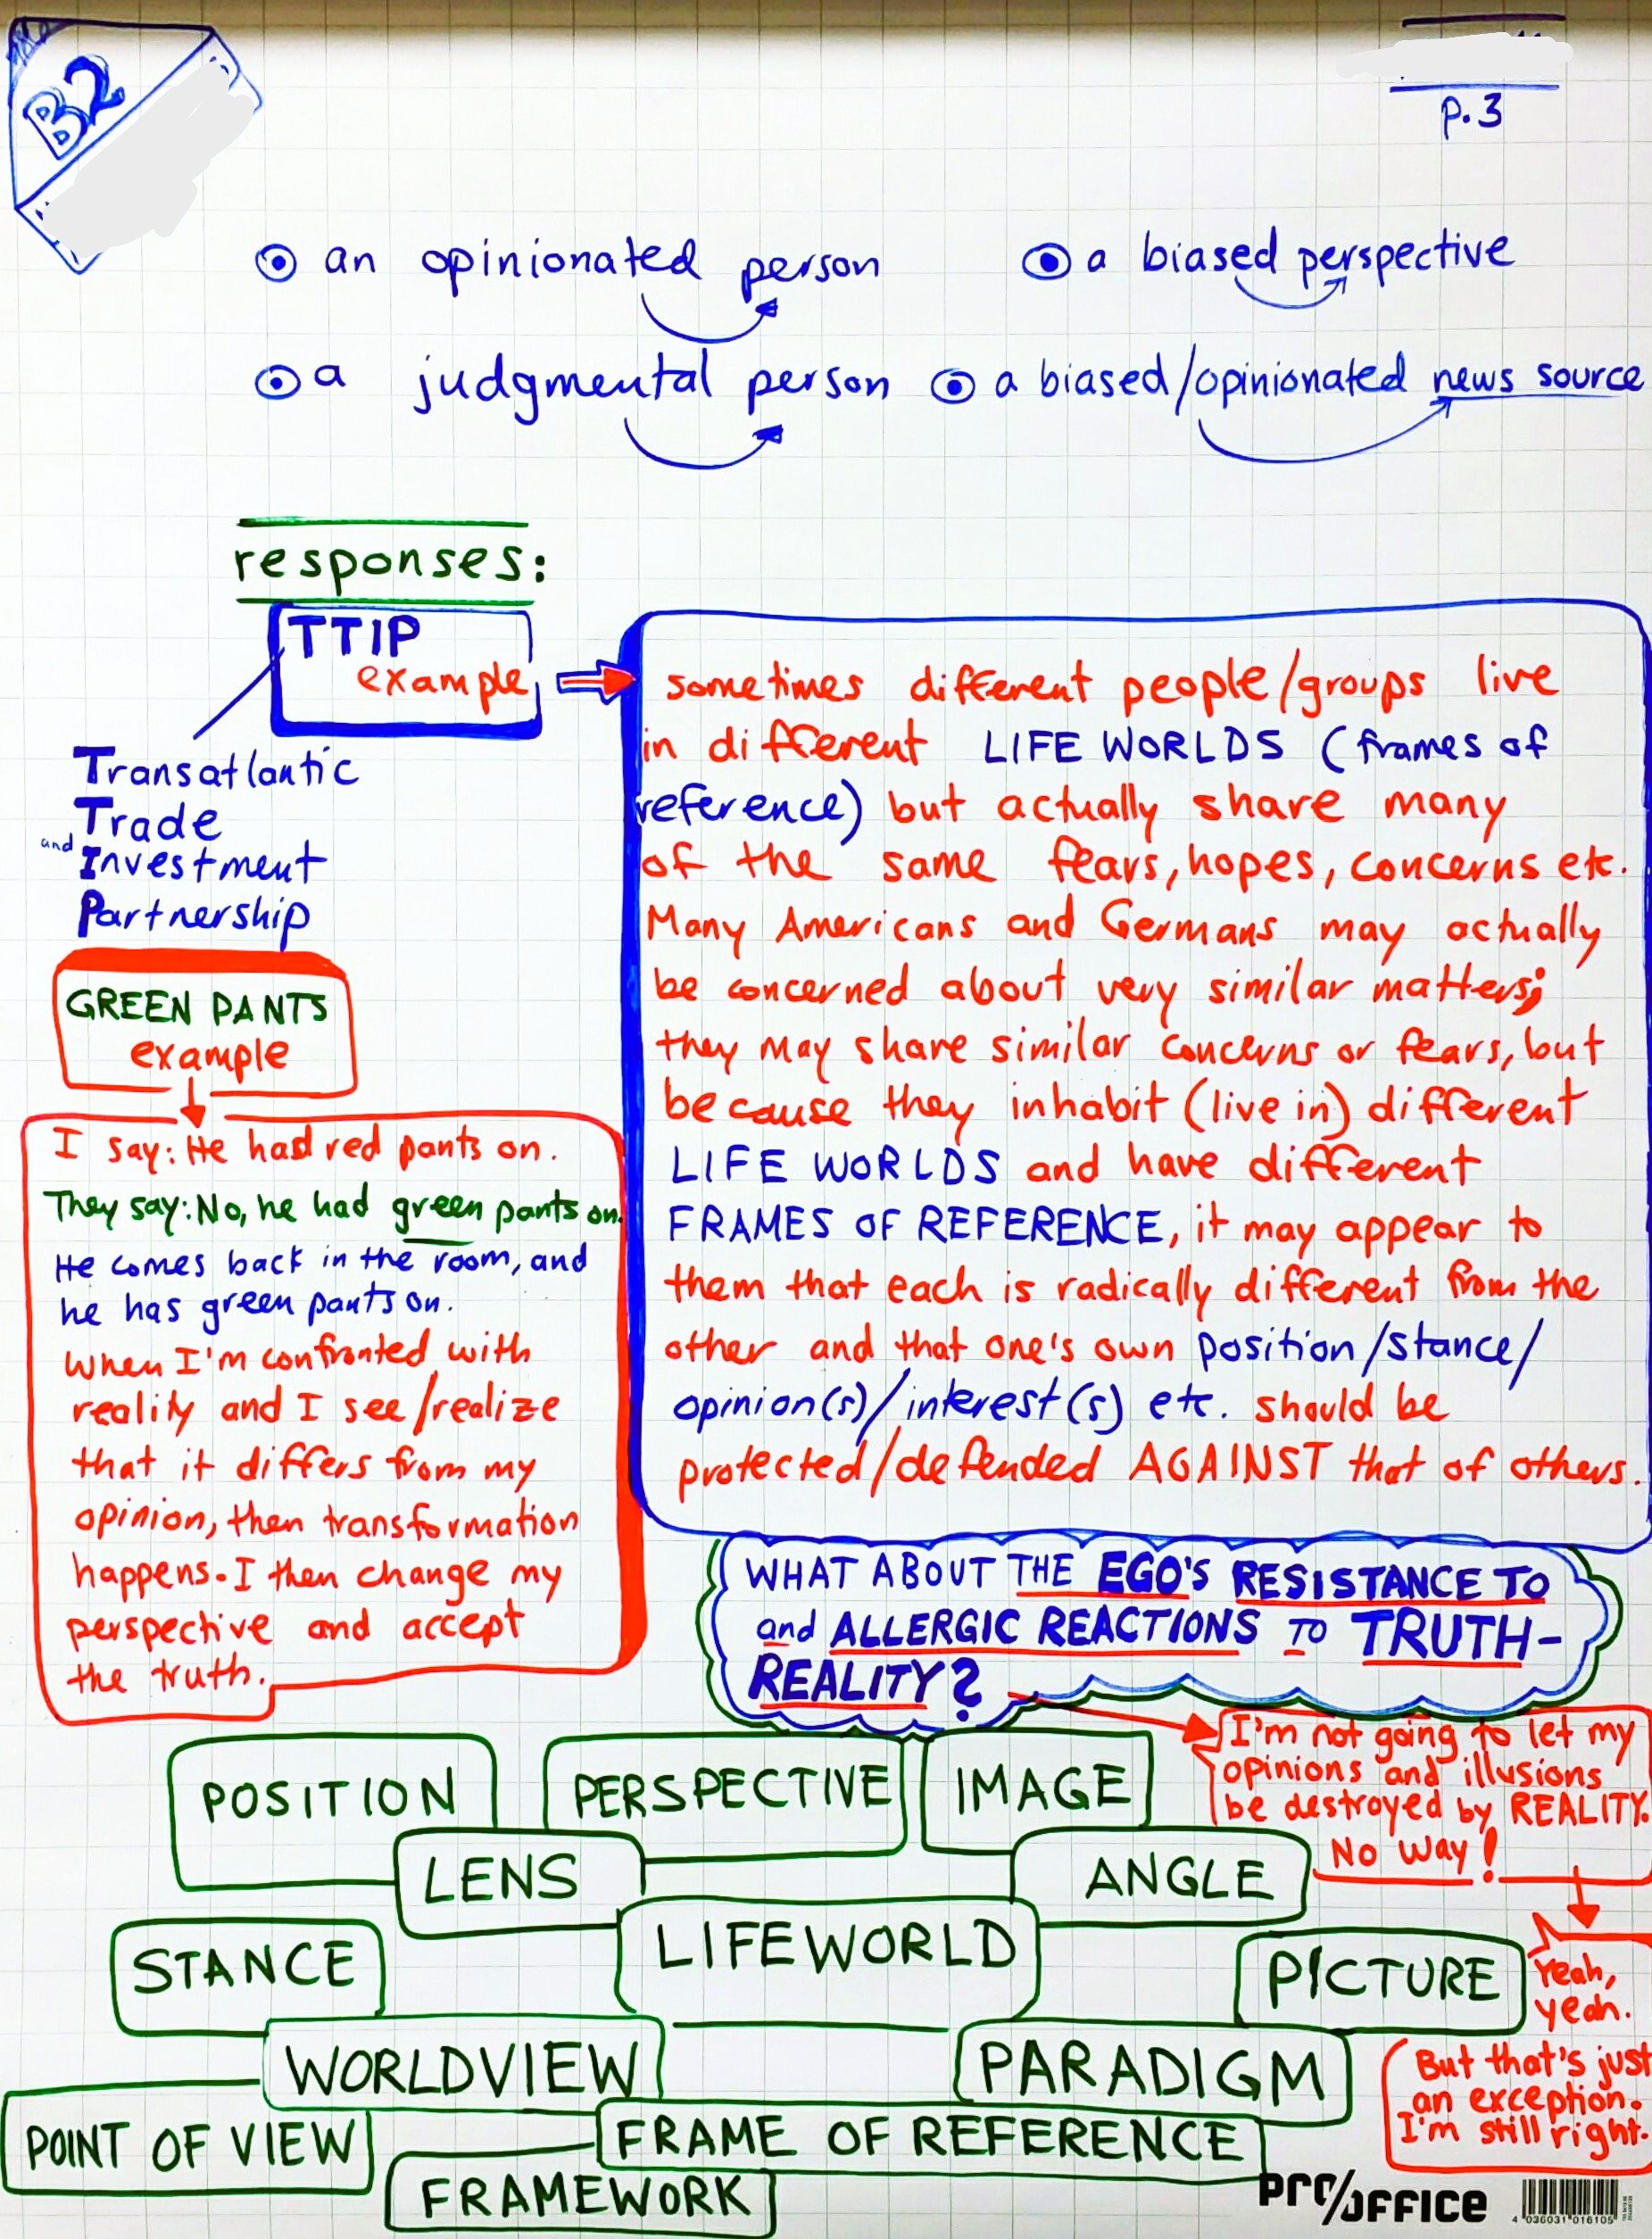 B2
p.3
an opinionated person
a biased perspective
a judgmental person
a biased/opinionated news source
responses:
TTIP
example
Transatlantic
Trade
and Investment
Partnership
sometimes different people/groups live
in different LIFE WORLDS (frames of
reference) but actually share many
of the same fears, hopes, concerns etc.
Many Americans and Germans may actually
be concerned about very similar matters;
they may share similar concerns or fears, but
because they inhabit (live in) different
LIFE WORLDS and have different
FRAMES OF REFERENCE, it may appear to
them that each is radically different from the
other and that one's own position/stance/
opinion(s)/interest(s) etc. should be
protected/defended AGAINST that of others.
GREEN PANTS
example
I say: He had red pants on.
They say: No, he had green pants on.
He comes back in the room, and
he has green pants on.
When I'm confronted with
reality and I see/realize
that it differs from my
opinion, then transformation
happens. I then change my
perspective and accept
the truth.
WHAT ABOUT THE EGO'S RESISTANCE TO
and ALLERGIC REACTIONS TO TRUTH-
REALITY?
I'm not going to let my
opinions and illusions
be destroyed by REALITY.
No way!
Yeah,
yeah.
But that's just
an exception.
I'm still right.
POSITION
PERSPECTIVE
IMAGE
LENS
ANGLE
STANCE
LIFEWORLD
PICTURE
WORLDVIEW
PARADIGM
POINT OF VIEW
FRAME OF REFERENCE
FRAMEWORK
pro/OFFICE
4 036031 016105